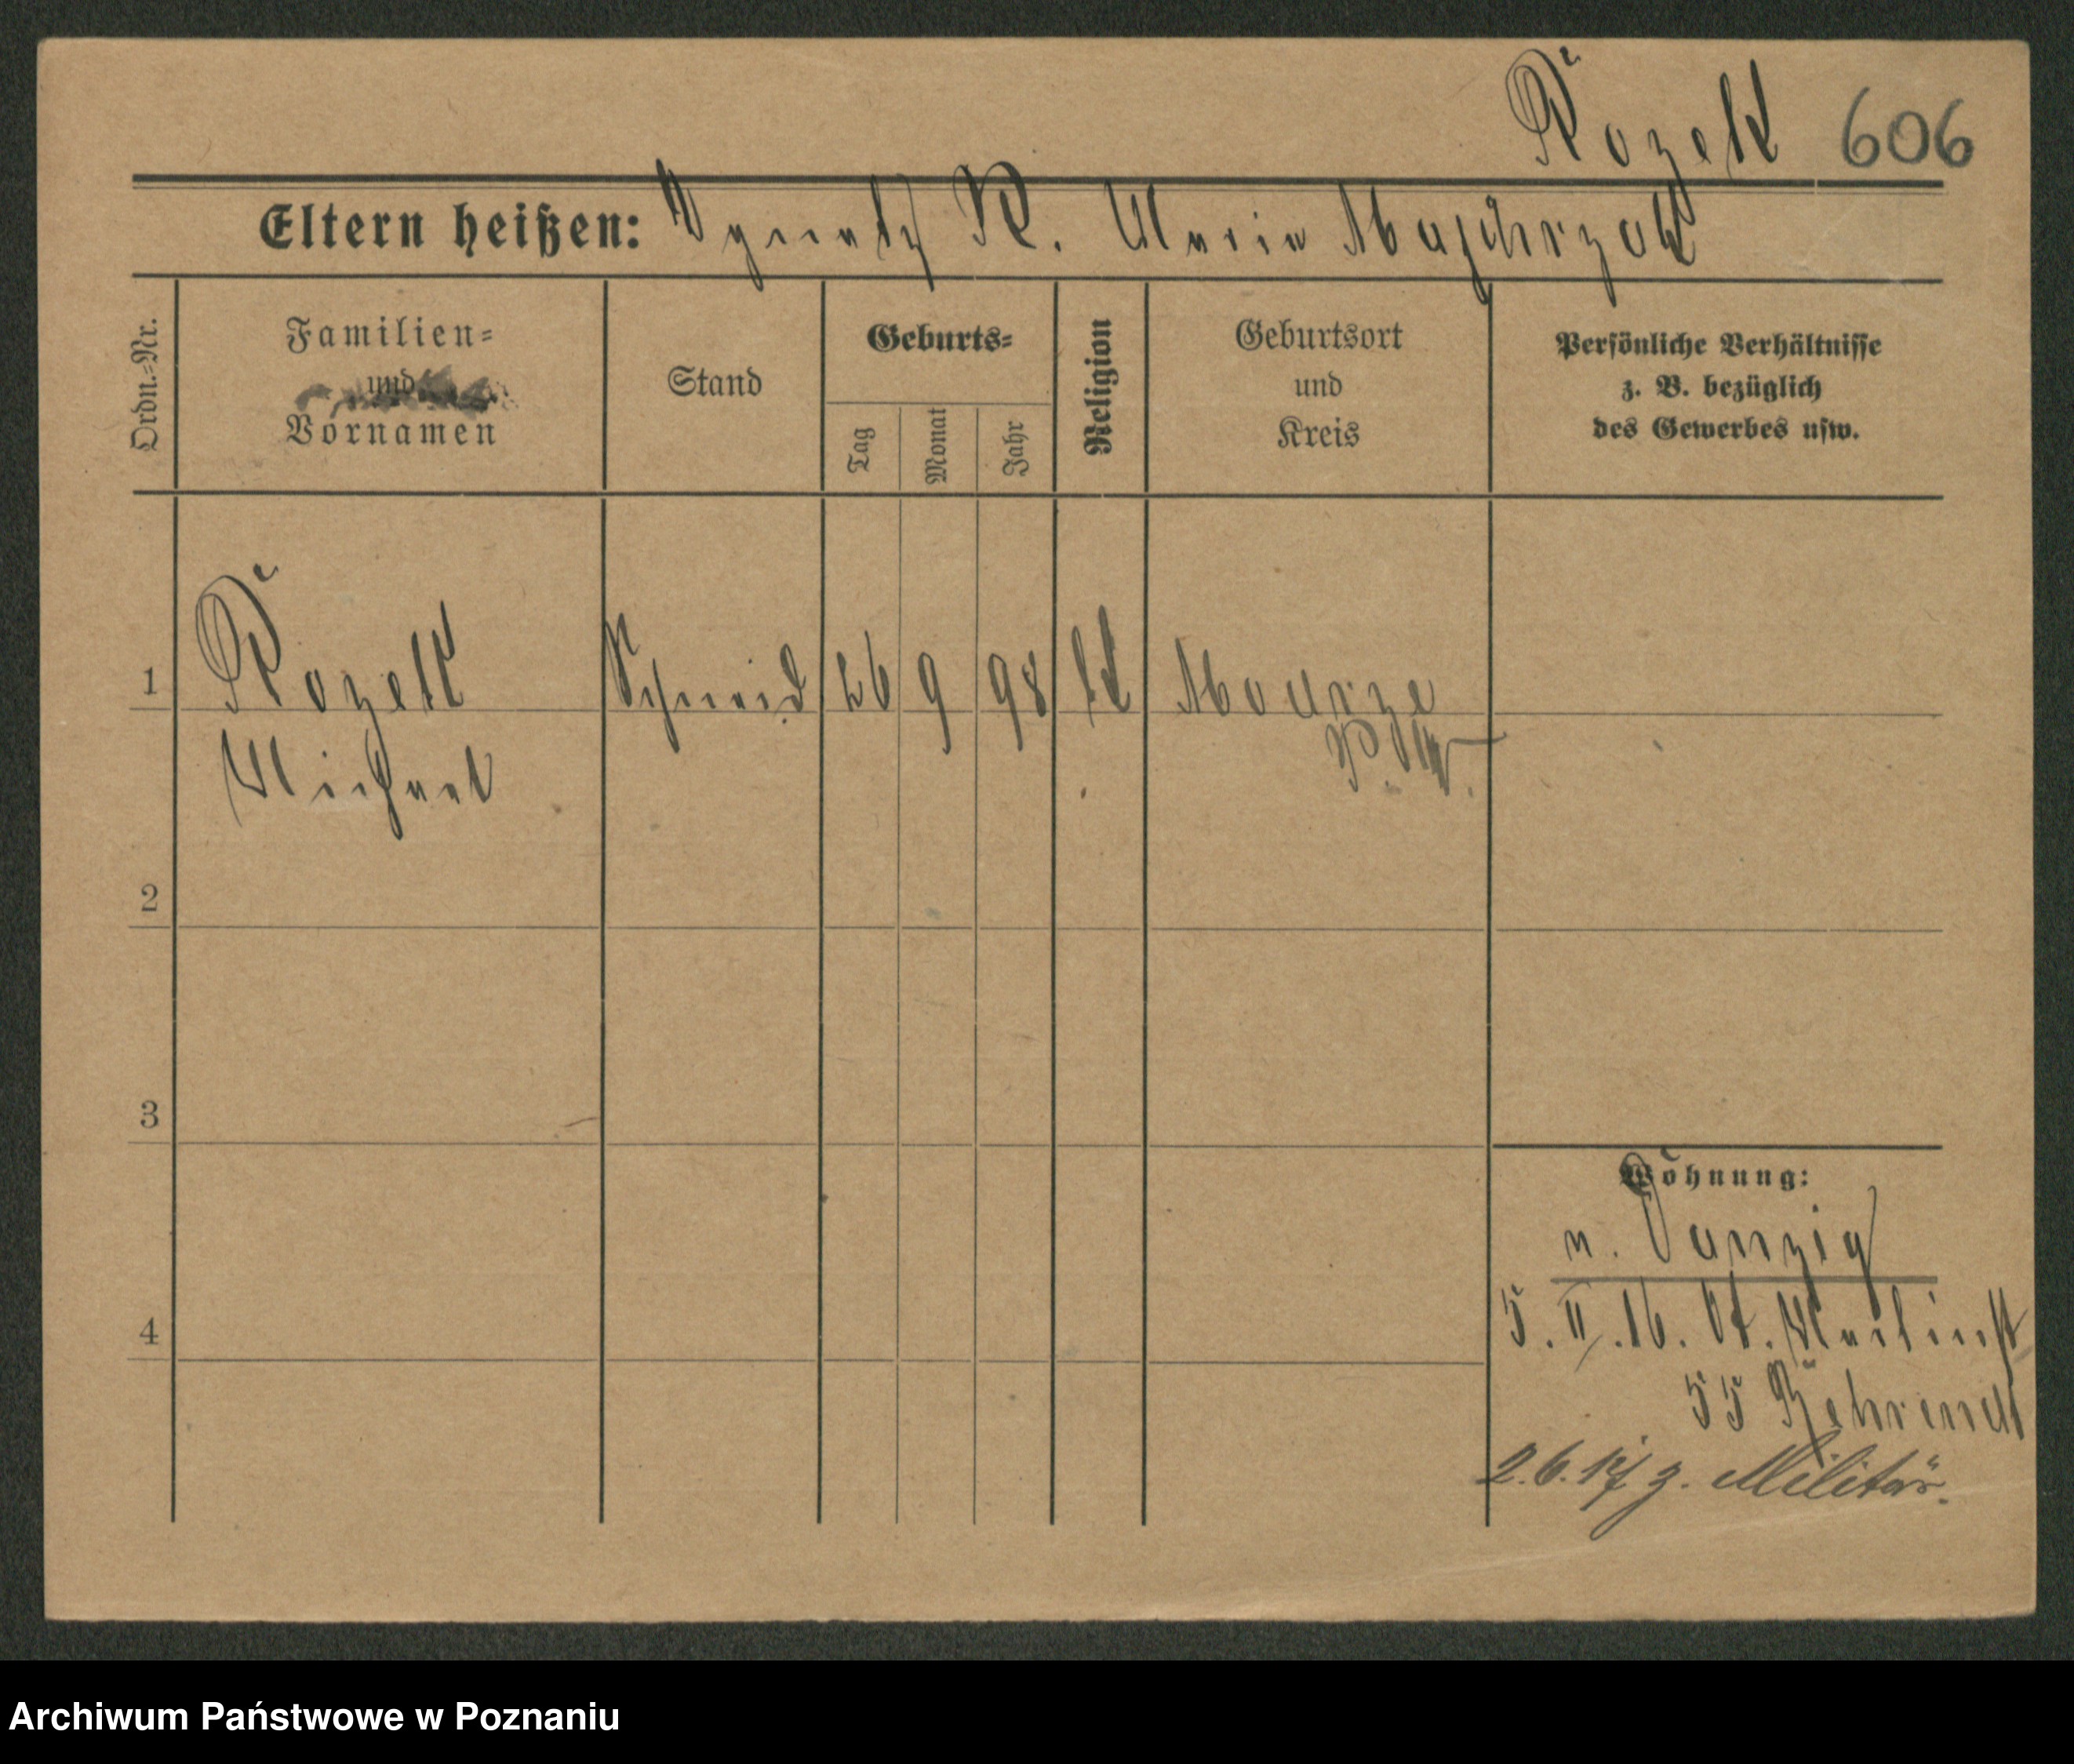 Rozek 606
Eltern heißen: Ignatz R. Marie Majchrzak
Ordn.-Nr.
Familien- und Vornamen
Stand
Geburts-
Tag
Monat
Jahr
Religion
Geburtsort und Kreis
Persönliche Verhältnisse z. B. bezüglich des Gewerbes usw.
1 Rozek Schneid. 26 9 98 k
Michael
2
3
4
Wohnung:
n. Danzig
5. II. 16. St. Martinst
55 Behrendt
2.6.17 z. Militär.
Archiwum Państwowe w Poznaniu